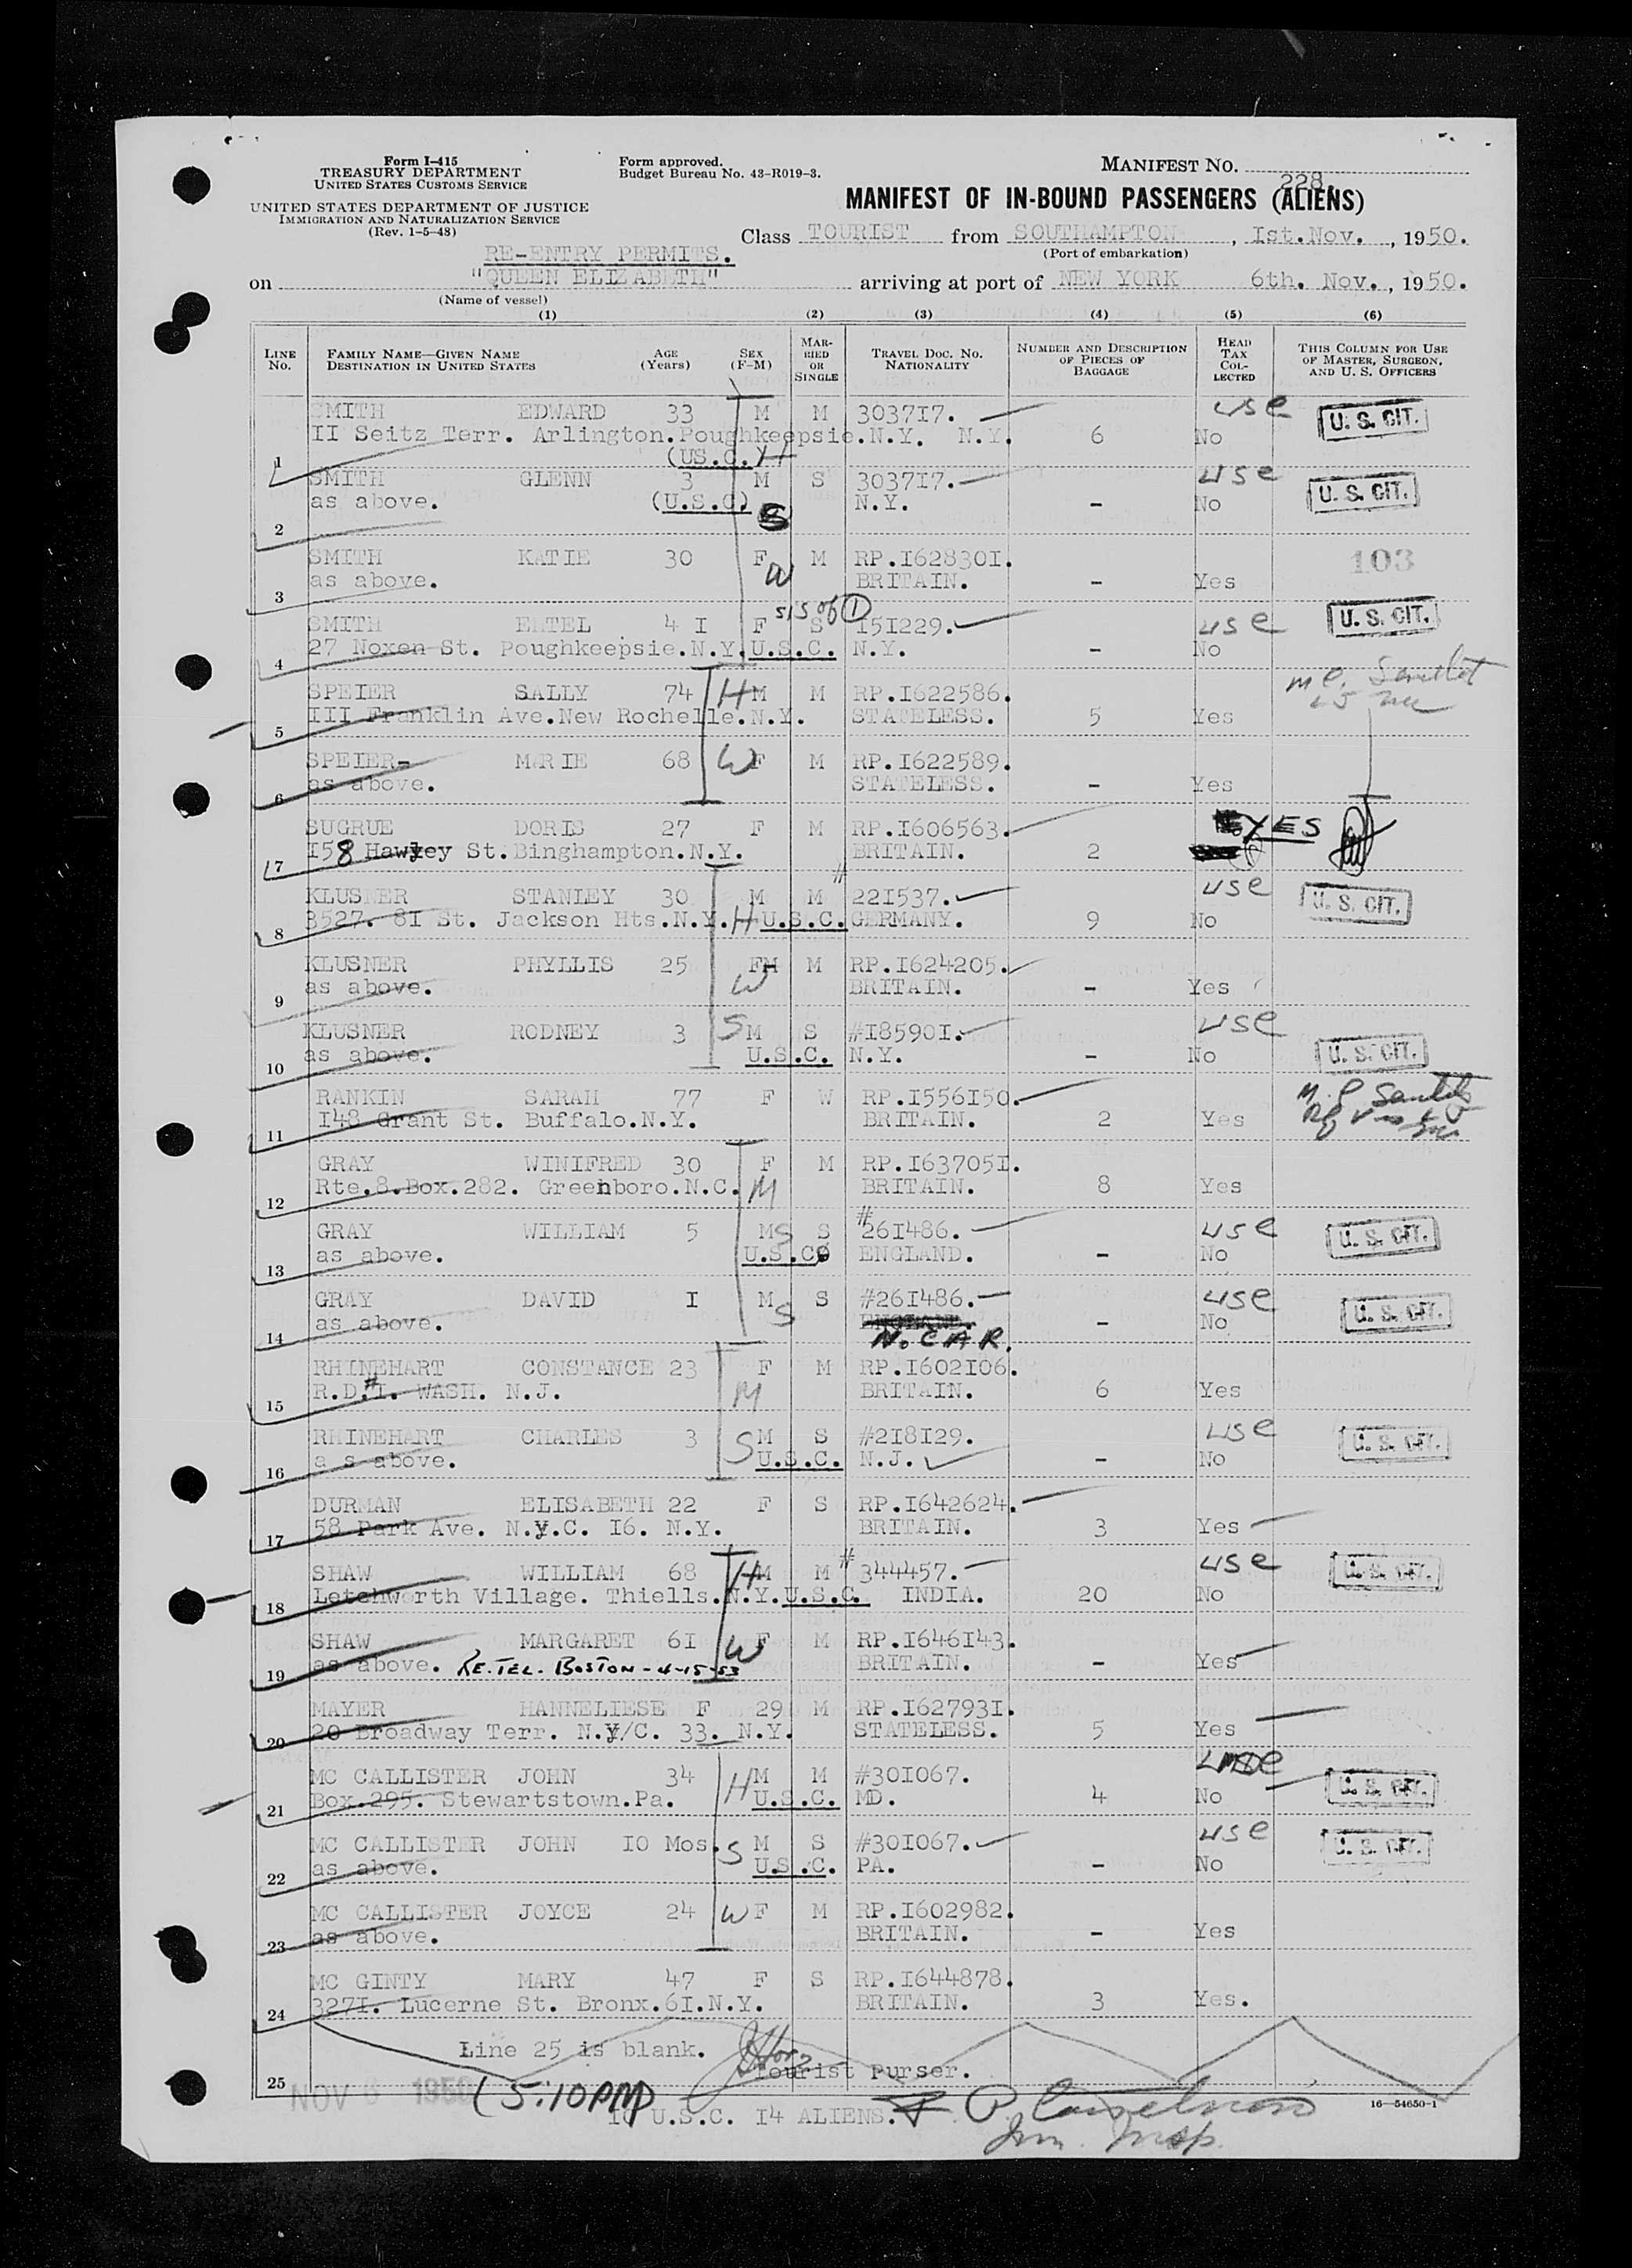 Form I-415
TREASURY DEPARTMENT
UNITED STATES CUSTOMS SERVICE
UNITED STATES DEPARTMENT OF JUSTICE
IMMIGRATION AND NATURALIZATION SERVICE
(Rev. 1-5-48)
Form approved.
Budget Bureau No. 43-R019-3.
MANIFEST NO.
228.
MANIFEST OF IN-BOUND PASSENGERS (ALIENS)
Class TOURIST from SOUTHAMPTON, Ist.Nov., 1950.
(Port of embarkation)
RE-ENTRY PERMITS.
on "QUEEN ELIZABETH" arriving at port of NEW YORK 6th. Nov., 1950.
(Name of vessel)
(1) (2) (3) (4) (5) (6)
LINE No. FAMILY NAME—GIVEN NAME DESTINATION IN UNITED STATES AGE (Years) SEX (F-M) MARRIED OR SINGLE TRAVEL DOC. NO. NATIONALITY NUMBER AND DESCRIPTION OF PIECES OF BAGGAGE HEAD TAX COLLECTED THIS COLUMN FOR USE OF MASTER, SURGEON, AND U. S. OFFICERS
SMITH EDWARD 33 M M 303717. USC U. S. CIT.
II Seitz Terr. Arlington.Poughkeepsie.N.Y. N.Y. 6 No
1 (US.C.) H
SMITH GLENN 3 M S 303717. USC U. S. CIT.
as above. (U.S.C) S N.Y. - No
2
SMITH KATIE 30 F W M RP.I628301. 103
as above. BRITAIN. - Yes
3
sis of 1
SMITH ETHEL 4I F S 151229. USC U. S. CIT.
27 Noxen St. Poughkeepsie.N.Y. U.S.C. N.Y. - No
4
SPEIER SALLY 74 H M M RP.I622586.
III Franklin Ave.New Rochelle.N.Y. STATELESS. 5 Yes
5
SPEIER- MARIE 68 W F M RP.I622589.
as above. STATELESS. - Yes
6
SUGRUE DORIS 27 F M RP.I606563. YES
158 Hawley St. Binghampton.N.Y. BRITAIN. 2
7
KLUSNER STANLEY 30 M M # 221537. USC U. S. CIT.
3527. 8I St. Jackson Hts.N.Y. H U.S.C. GERMANY. 9 No
8
KLUSNER PHYLLIS 25 F W M RP.I624205.
as above. BRITAIN. - Yes
9
KLUSNER RODNEY 3 S M S #185901. USC
as above. U.S.C. N.Y. - No U. S. CIT.
10
RANKIN SARAH 77 F W RP.I556150.
148 Grant St. Buffalo.N.Y. BRITAIN. 2 Yes
11
GRAY WINIFRED 30 F M RP.I637051.
Rte.8.Box.282. Greenboro.N.C. M BRITAIN. 8 Yes
12
GRAY WILLIAM 5 M S S #261486. USC U. S. CIT.
as above. U.S.C ENGLAND. - No
13
GRAY DAVID I M S S #261486. USC U. S. CIT.
as above. - No
14 No CAR.
RHINEHART CONSTANCE 23 F M RP.I602106.
R.D.#I. WASH. N.J. M BRITAIN. 6 Yes
15
RHINEHART CHARLES 3 S M S #218129. USC U. S. CIT.
a s above. U.S.C. N.J. - No
16
DURMAN ELISABETH 22 F S RP.I642624.
58 Park Ave. N.Y.C. I6. N.Y. BRITAIN. 3 Yes
17
SHAW WILLIAM 68 H M M # 344457. USC U. S. CIT.
Letchworth Village. Thiells.N.Y.U.S.C. INDIA. 20 No
18
SHAW MARGARET 6I W F M RP.I646143.
as above. RE.TEL. BOSTON-4-15-53 BRITAIN. - Yes
19
MAYER HANNELIESE F 29 M RP.I627931.
20 Broadway Terr. N.Y/C. 33. N.Y. STATELESS. 5 Yes
20
MC CALLISTER JOHN 34 H M M #301067. U. S. CIT.
Box.295. Stewartstown.Pa. U.S.C. MD. 4 No
21
MC CALLISTER JOHN IO Mos. S M S #301067. USC U. S. CIT.
as above. U.S.C. PA. - No
22
MC CALLISTER JOYCE 24 W F M RP.I602982.
as above. BRITAIN. - Yes
23
MC GINTY MARY 47 F S RP.I644878.
327I. Lucerne St. Bronx.6I.N.Y. BRITAIN. 3 Yes.
24
Line 25 is blank.
Tourist Purser.
25
NOV 6 1950 (5:10PM)
10 U.S.C. I4 ALIENS.
16—54650-1
Imm. Insp.